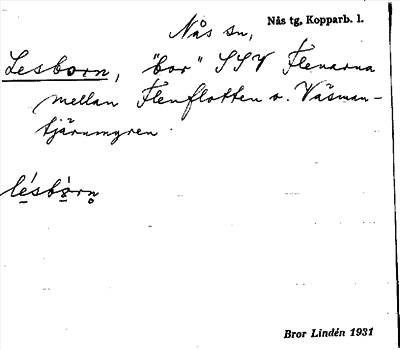 Nås sn, Nås tg, Kopparb. l.
Lesborn, "bor" SSV Flenarna
mellan Flenflotten o. Väsman-
tjärnmyren.
lésbòrn
Bror Lindén 1931